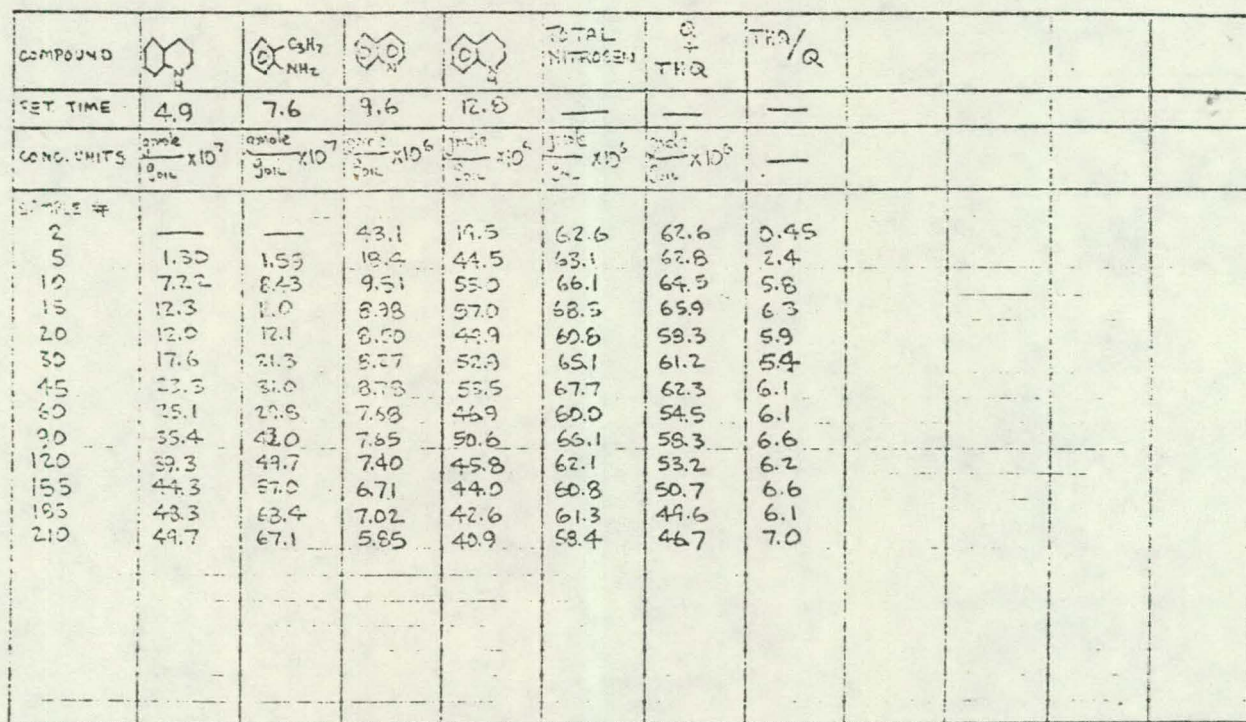 COMPOUND C3H7 NH2 N N H TOTAL NITROGEN Q + THQ THQ/Q
RET TIME 4.9 7.6 9.6 12.8 — — —
CONC. UNITS gmole/gOIL x10^7 gmole/gOIL x10^7 x10^6 x10^6 x10^6 x10^6 —
SAMPLE #
2 — — 43.1 19.5 62.6 62.6 0.45
5 1.30 18.4 44.5 63.1 62.8 2.4
10 7.22 8.43 9.51 55.0 66.1 64.5 5.8
15 12.3 8.98 57.0 68.3 65.9 6.3
20 12.0 12.1 8.50 49.9 60.8 58.3 5.9
30 17.6 21.3 52.9 65.1 61.2 5.4
45 23.3 31.0 8.78 53.5 67.7 62.3 6.1
60 25.1 29.8 7.68 46.9 60.0 54.5 6.1
90 35.4 7.65 50.6 66.1 58.3 6.6
120 39.3 49.7 7.40 45.8 62.1 53.2 6.2
155 44.3 57.0 6.71 44.0 60.8 50.7 6.6
185 48.3 63.4 7.02 42.6 61.3 49.6 6.1
210 49.7 67.1 5.85 40.9 58.4 46.7 7.0